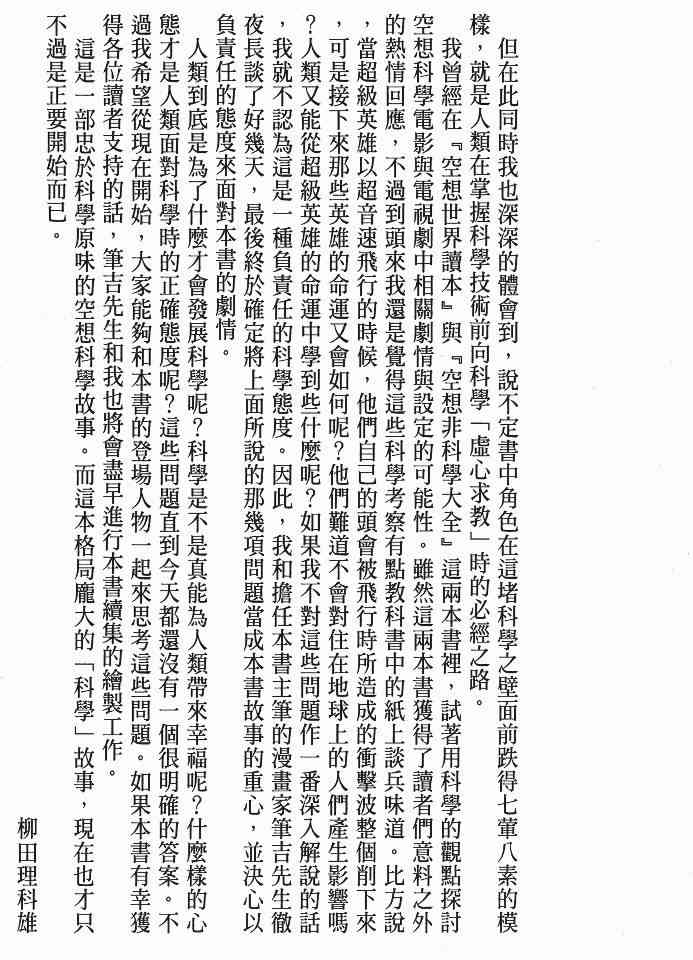 但在此同時我也深深的體會到，說不定書中角色在這堵科學之壁面前跌得七葷八素的模
樣，就是人類在掌握科學技術前向科學「虛心求教」時的必經之路。
我曾經在『空想世界讀本』與『空想非科學大全』這兩本書裡，試著用科學的觀點探討
空想科學電影與電視劇中相關劇情與設定的可能性。雖然這兩本書獲得了讀者們意料之外
的熱情回應，不過到頭來我還是覺得這些科學考察有點教科書中的紙上談兵味道。比方說
，當超級英雄以超音速飛行的時候，他們自己的頭會被飛行時所造成的衝擊波整個削下來
，可是接下來那些英雄的命運又會如何呢？他們難道不會對住在地球上的人們產生影響嗎
？人類又能從超級英雄的命運中學到些什麼呢？如果我不對這些問題作一番深入解說的話
，我就不認為這是一種負責任的科學態度。因此，我和擔任本書主筆的漫畫家筆吉先生徹
夜長談了好幾天，最後終於確定將上面所說的那幾項問題當成本書故事的重心，並決心以
負責任的態度來面對本書的劇情。
人類到底是為了什麼才會發展科學呢？科學是不是真能為人類帶來幸福呢？什麼樣的心
態才是人類面對科學時的正確態度呢？這些問題直到今天都還沒有一個很明確的答案。不
過我希望從現在開始，大家能夠和本書的登場人物一起來思考這些問題。如果本書有幸獲
得各位讀者支持的話，筆吉先生和我也將會盡早進行本書續集的繪製工作。
這是一部忠於科學原味的空想科學故事。而這本格局龐大的「科學」故事，現在也才只
不過是正要開始而已。
柳田理科雄